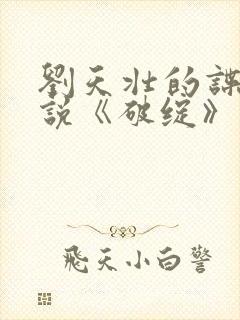 劉天壯的諜
說《破綻》
飛天小白警